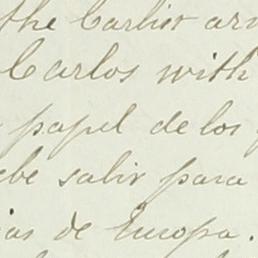 the Carlist
Carlos with
papel de los
salir para
de Europa.